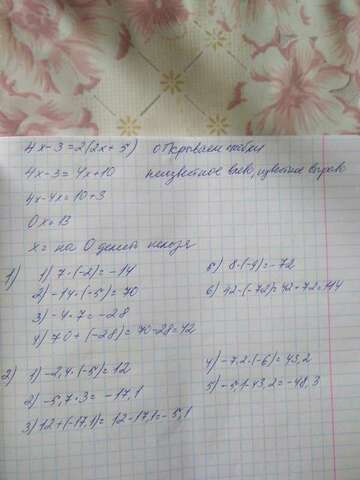 4x-3=2(2x+5) открываем скобки
4x-3=4x+10 неизвестное влево, известное вправо
4x-4x=10+3
0x=13
x= на 0 делить нельзя
1) 1) 7·(-2)=-14
2) -14·(-5)=70
3) -4·7=-28
4) 70+(-28)=70-28=42
5) 8·(-9)=-72
6) 42-(-72)=42+72=144
2) 1) -2,4·(-5)=12
2) -5,7·3=-17,1
3) 12+(-17,1)=12-17,1=-5,1
4) -7,2·(-6)=43,2
5) -5,1-43,2=-48,3